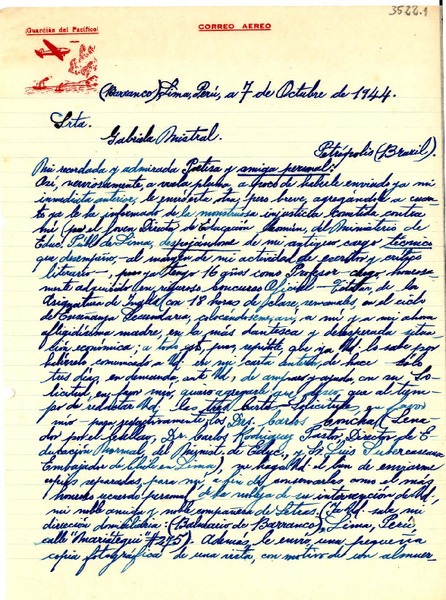 3522.1
Guardián del Pacífico
CORREO AEREO
(Barranco) Lima, Perú, a 7 de Octubre de 1944.
Srta.
Gabriela Mistral.
Petrópolis (Brazil).
Mi recordada y admirada Poetisa y amiga personal:
Así, nerviosamente, a vuela pluma, a poco de haberle enviado ya mi
inmediata anterior, le envío esta otra, pero breve, agregándole a cuan-
to ya le he informado de la monstruosa injusticia cometida contra
mí (por el Director de Educación Común, del Ministerio de
Educ. Públ. de Lima, despojándome de mi antiguo cargo técnico
que desempeño, al margen de mi actividad de escritor y crítico
literario, pues ya tengo 16 años como Profesor
mente adquirido en Concurso Oficial Titular, de la
Asignatura de Inglés con 18 horas de clase, semanales, en el ciclo
de Enseñanza Secundaria, colocándome así a mí y a mi ahora
afligidísima madre, en la más dantesca y desesperada situa-
ción económica; a todo esto, pues, repítole, que ya Ud. lo sabe por
habérselo comunicado a Ud. en mi carta anterior, de hace sólo
tres días, en demanda, ante Ud., de amparo y ayuda, con su So-
licitud, en favor mío, quiero agregarle que, al tiem-
po de redactar Ud. las tres Cartas Solicitudes, en favor
mío para respectivamente, los Drs. Carlos Concha (Sena-
dor por el Callao), Dr. Carlos Rodríguez Pastor, Director de E-
ducación Normal, del Minist. de Educ., y Dr. Luis Subercaseaux
Embajador de Chile en Lima), me haga Ud. el bien de enviarme
copias separadas, para mí, a fin de conservarlas como el más
honroso recuerdo personal, de la nobleza de su intervención de Ud.
mi noble amiga y noble compañera de Letras. (Ya Ud. sabe mi
dirección domiciliaria: (Balneario de Barranco), Lima, Perú,
calle "Mariátegui" #275). Además le envío una pequeña
copia fotográfica de una vista, con motivo de un almuer-